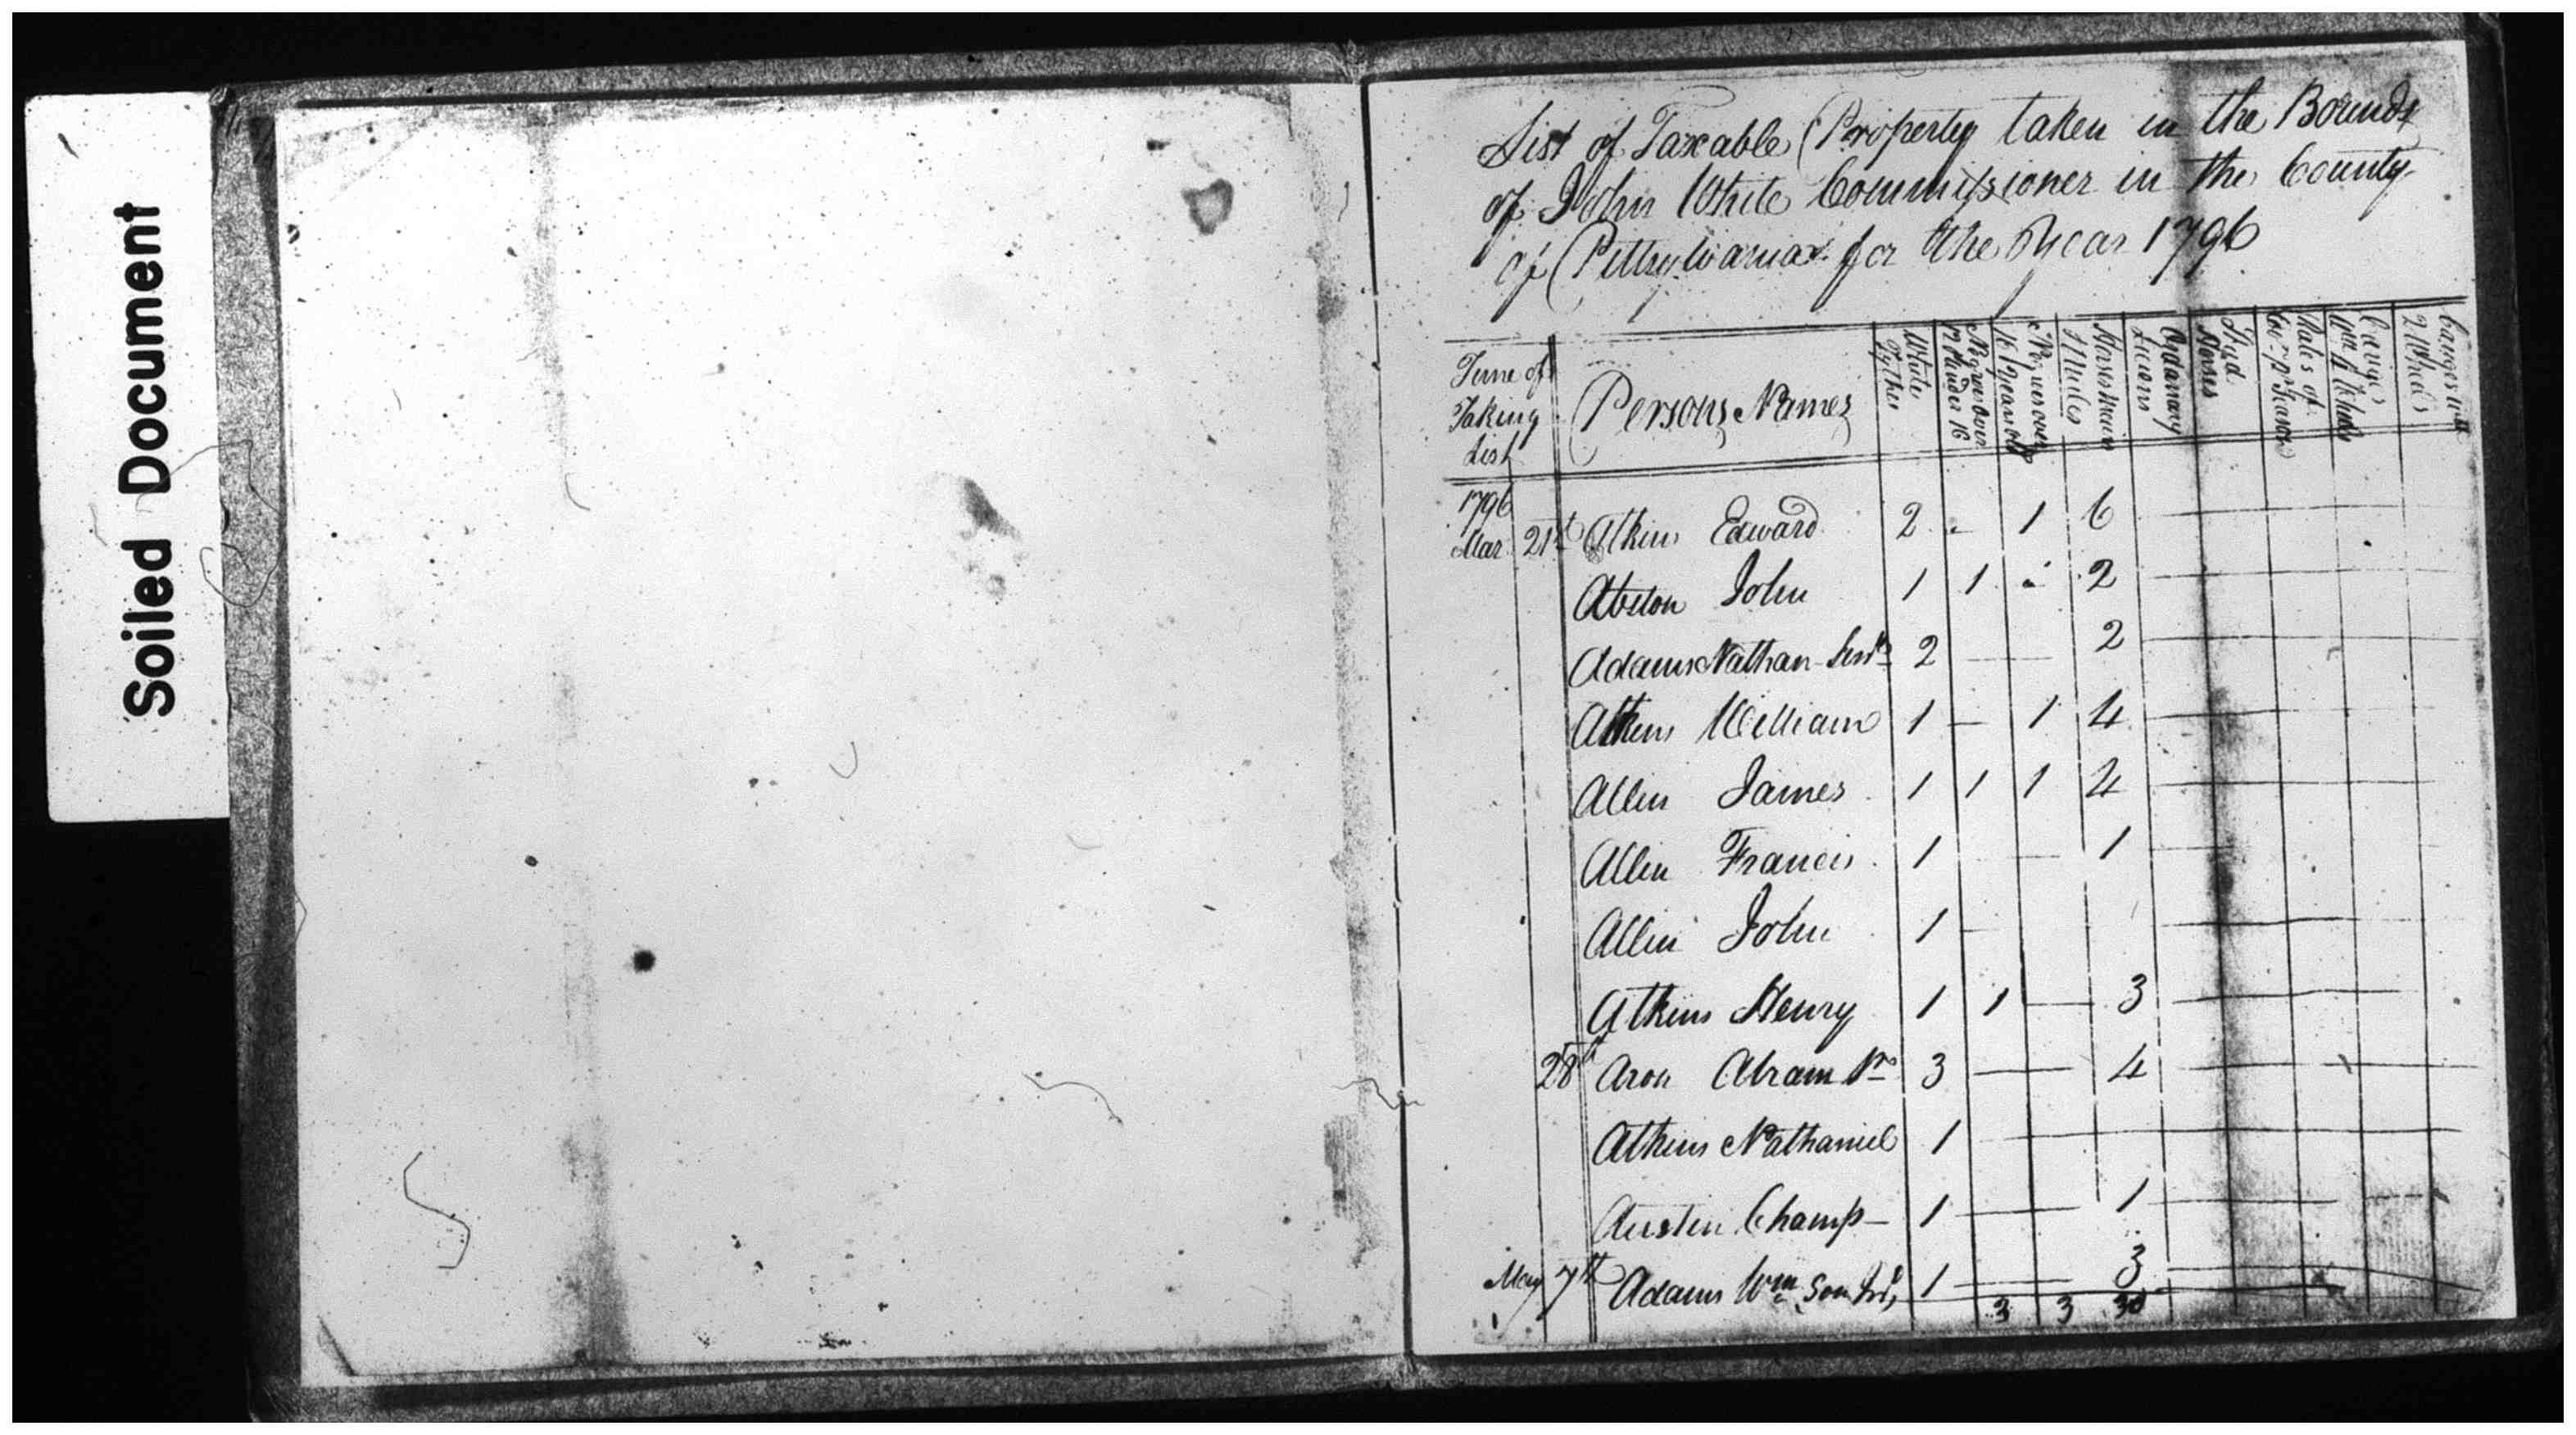 Soiled Document
List of Taxable Property taken in the Bounds
of John White Commissioner in the County
of Pittsylvania for the Year 1796
Time of
Taking
List
Persons Names
White
Tythes
Negroes over
12 & under 16
Negroes over
16 Years old
Horses Mares
& Mules
Ordinary
Licens
Stud
Horses
Rates of
Cov. pr Season
Carriages
2 Wheels
1796
Mar 21st Atkins Edward 2 . 1 6
Abston John 1 1 . 2
Adams Nathan Senr 2 — 2
Atkins William 1 — 1 4
Allin James 1 1 1 4
Allin Francis 1 — 1
Allin John 1 —
Atkins Henry 1 1 — 3
28th Aron Abram Sr 3 — 4
Atkins Nathaniel 1 —
Austin Champ 1 — 1
May 7th Adams Wm Son 1 — 3
3 3 30